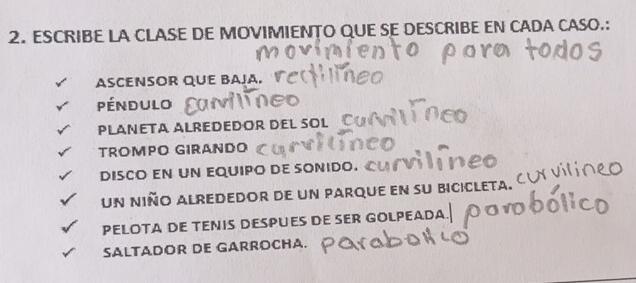 2. ESCRIBE LA CLASE DE MOVIMIENTO QUE SE DESCRIBE EN CADA CASO.:
movimiento para todos
✓ ASCENSOR QUE BAJA. rectilíneo
✓ PÉNDULO curvilíneo
✓ PLANETA ALREDEDOR DEL SOL curvilíneo
✓ TROMPO GIRANDO curvilíneo
✓ DISCO EN UN EQUIPO DE SONIDO. curvilíneo
✓ UN NIÑO ALREDEDOR DE UN PARQUE EN SU BICICLETA. curvilineo
✓ PELOTA DE TENIS DESPUES DE SER GOLPEADA. parobólico
✓ SALTADOR DE GARROCHA. parabolico